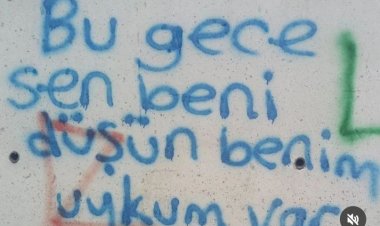 Bu gece
sen beni
düşün benim
uykum var